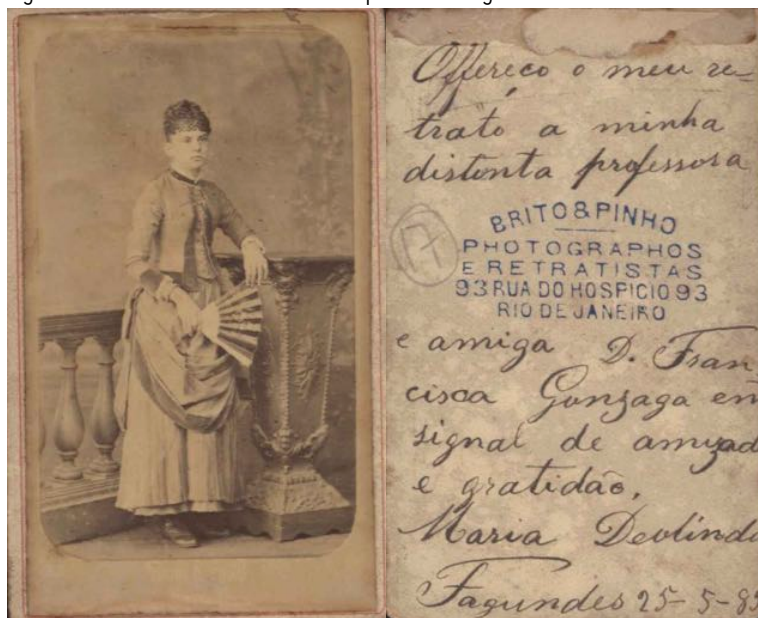 Offereço o meu re-
trato a minha
distenta professora
BRITO & PINHO
PHOTOGRAPHOS
E RETRATISTAS
93 RUA DO HOSPICIO 93
RIO DE JANEIRO
e amiga D. Fran
cisca Gonzaga em
signal de amizad
e gratidão,
Maria Deolinda
Fagundes 25-5-85